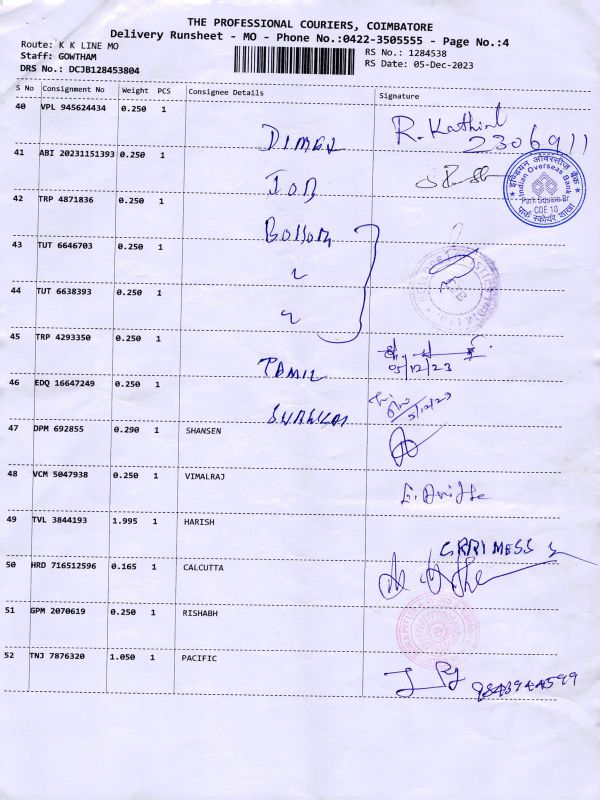 THE PROFESSIONAL COURIERS, COIMBATORE
Delivery Runsheet - MO - Phone No.:0422-3505555 - Page No.:4
Route: K K LINE MO
RS No.: 1284538
Staff: GOWTHAM
RS Date: 05-Dec-2023
DRS No.: DCJB128453804
S No Consignment No Weight PCS Consignee Details Signature
40 VPL 945624434 0.250 1
R. Kathir
2306911
41 ABI 20231151393 0.250 1
इण्डियन ओवरसीज बैंक
Indian Overseas Bank
Park Square Br
CBE 18
पार्क स्कोयर शाखा
42 TRP 4871836 0.250 1
43 TUT 6646703 0.250 1
44 TUT 6638393 0.250 1
45 TRP 4293350 0.250 1
TAMIL
05/12/23
46 EDQ 16647249 0.250 1
5/12/23
47 DPM 692855 0.290 1 SHANSEN
48 VCM 5047938 0.250 1 VIMALRAJ
49 TVL 3844193 1.995 1 HARISH
50 HRD 716512596 0.165 1 CALCUTTA
51 GPM 2070619 0.250 1 RISHABH
52 TNJ 7876320 1.050 1 PACIFIC